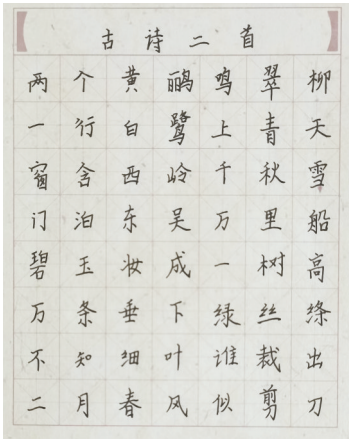 古诗二首
两个黄鹂鸣翠柳
一行白鹭上青天
窗含西岭千秋雪
门泊东吴万里船
碧玉妆成一树高
万条垂下绿丝绦
不知细叶谁裁出
二月春风似剪刀